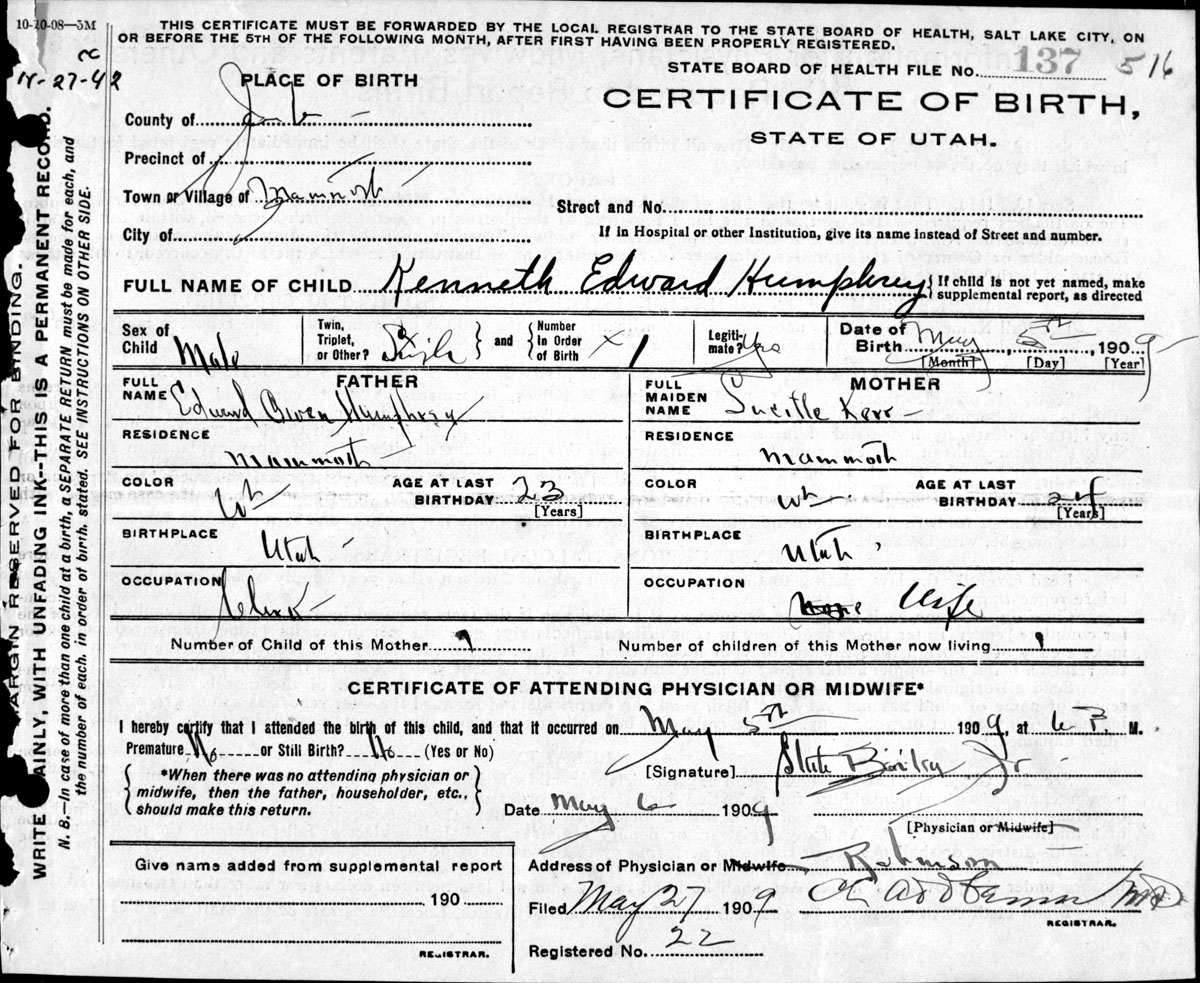 10-20-08—5M
THIS CERTIFICATE MUST BE FORWARDED BY THE LOCAL REGISTRAR TO THE STATE BOARD OF HEALTH, SALT LAKE CITY, ON
OR BEFORE THE 5TH OF THE FOLLOWING MONTH, AFTER FIRST HAVING BEEN PROPERLY REGISTERED.
-27-42
PLACE OF BIRTH
STATE BOARD OF HEALTH FILE No. 137 516
CERTIFICATE OF BIRTH,
STATE OF UTAH.
County of Juab
Precinct of
Town or Village of Mammoth
Street and No.
City of
If in Hospital or other Institution, give its name instead of Street and number.
FULL NAME OF CHILD Kenneth Edward Humphrey { If child is not yet named, make supplemental report, as directed
Sex of Child Male
Twin, Triplet, or Other? Single } and { Number In Order of Birth X 1
Legitimate? Yes
Date of Birth May 5th, 1909
[Month] [Day] [Year]
FATHER
FULL NAME Edward Owen Humphrey
RESIDENCE Mammoth
COLOR Wh
AGE AT LAST BIRTHDAY 23 [Years]
BIRTHPLACE Utah
OCCUPATION Clerk
MOTHER
FULL MAIDEN NAME Lucille Kerr
RESIDENCE Mammoth
COLOR Wh
AGE AT LAST BIRTHDAY 24 [Years]
BIRTHPLACE Utah
OCCUPATION Wife
Number of Child of this Mother 1
Number of children of this Mother now living 1
CERTIFICATE OF ATTENDING PHYSICIAN OR MIDWIFE*
I hereby certify that I attended the birth of this child, and that it occurred on May 5th 1909, at 6 P. M.
Premature No or Still Birth? No (Yes or No)
{ *When there was no attending physician or midwife, then the father, householder, etc., should make this return. }
[Signature] Steele Bailey Jr
Date May 6 1909
[Physician or Midwife]
Give name added from supplemental report
190
REGISTRAR.
Address of Physician or Midwife Robinson
Filed May 27 1909
REGISTRAR.
Registered No. 22
MARGIN RESERVED FOR BINDING.
WRITE PLAINLY, WITH UNFADING INK--THIS IS A PERMANENT RECORD.
N. B.—In case of more than one child at a birth, a SEPARATE RETURN must be made for each, and
the number of each, in order of birth, stated. SEE INSTRUCTIONS ON OTHER SIDE.